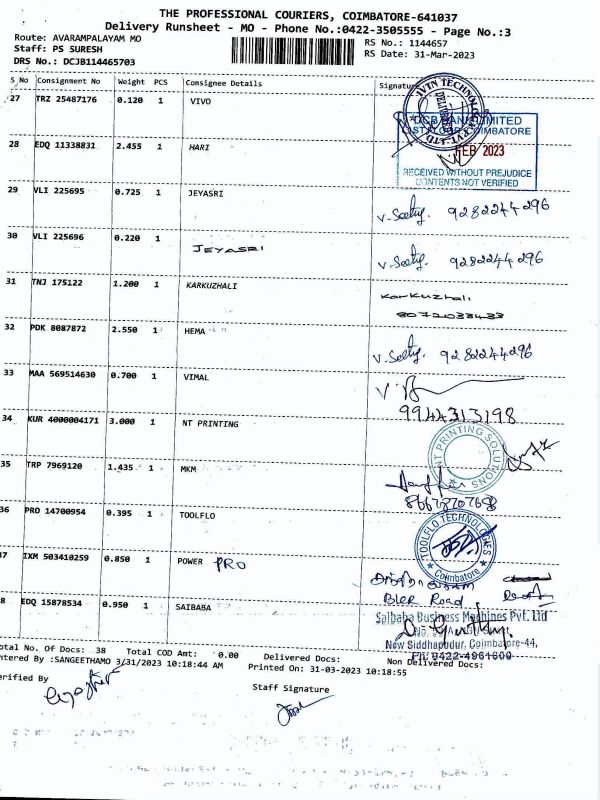 THE PROFESSIONAL COURIERS, COIMBATORE-641037
Delivery Runsheet - MO - Phone No.:0422-3505555 - Page No.:3
Route: AVARAMPALAYAM MO
Staff: PS SURESH
DRS No.: DCJB114465703
RS No.: 1144657
RS Date: 31-Mar-2023
S No Consignment No Weight PCS Consignee Details Signature
27 TRZ 25487176 0.120 1 VIVO
DCB BANK LIMITED
COIMBATORE
FEB 2023
28 EDQ 11338831 2.455 1 HARI
RECEIVED WITHOUT PREJUDICE
CONTENTS NOT VERIFIED
29 VLI 225695 0.725 1 JEYASRI
V. Seethy. 9282244296
30 VLI 225696 0.220 1 JEYASRI
V. Seethy. 9282244296
31 TNJ 175122 1.200 1 KARKUZHALI
Karkuzhali
8072033433
32 PDK 8087872 2.550 1 HEMA
V. Seethy. 9282244296
33 MAA 569514630 0.700 1 VIMAL
9944313198
34 KUR 4000004171 3.000 1 NT PRINTING
NT PRINTING SOLUTIONS
35 TRP 7969120 1.435 1 MKM
36 PRO 14700954 0.395 1 TOOLFLO
TOOLFLO TECHNOLOGIES
Coimbatore
37 IXM 503410259 0.850 1 POWER PRO
Bler Road
38 EDQ 15878534 0.950 1 SAIBABA
Saibaba Business Machines Pvt. Ltd
New Siddhapudur, Coimbatore-44,
Ph: 0422-4961600
Total No. Of Docs: 38 Total COD Amt: 0.00 Delivered Docs: Non Delivered Docs:
Entered By :SANGEETHAMO 3/31/2023 10:18:44 AM Printed On: 31-03-2023 10:18:55
Verified By
Staff Signature